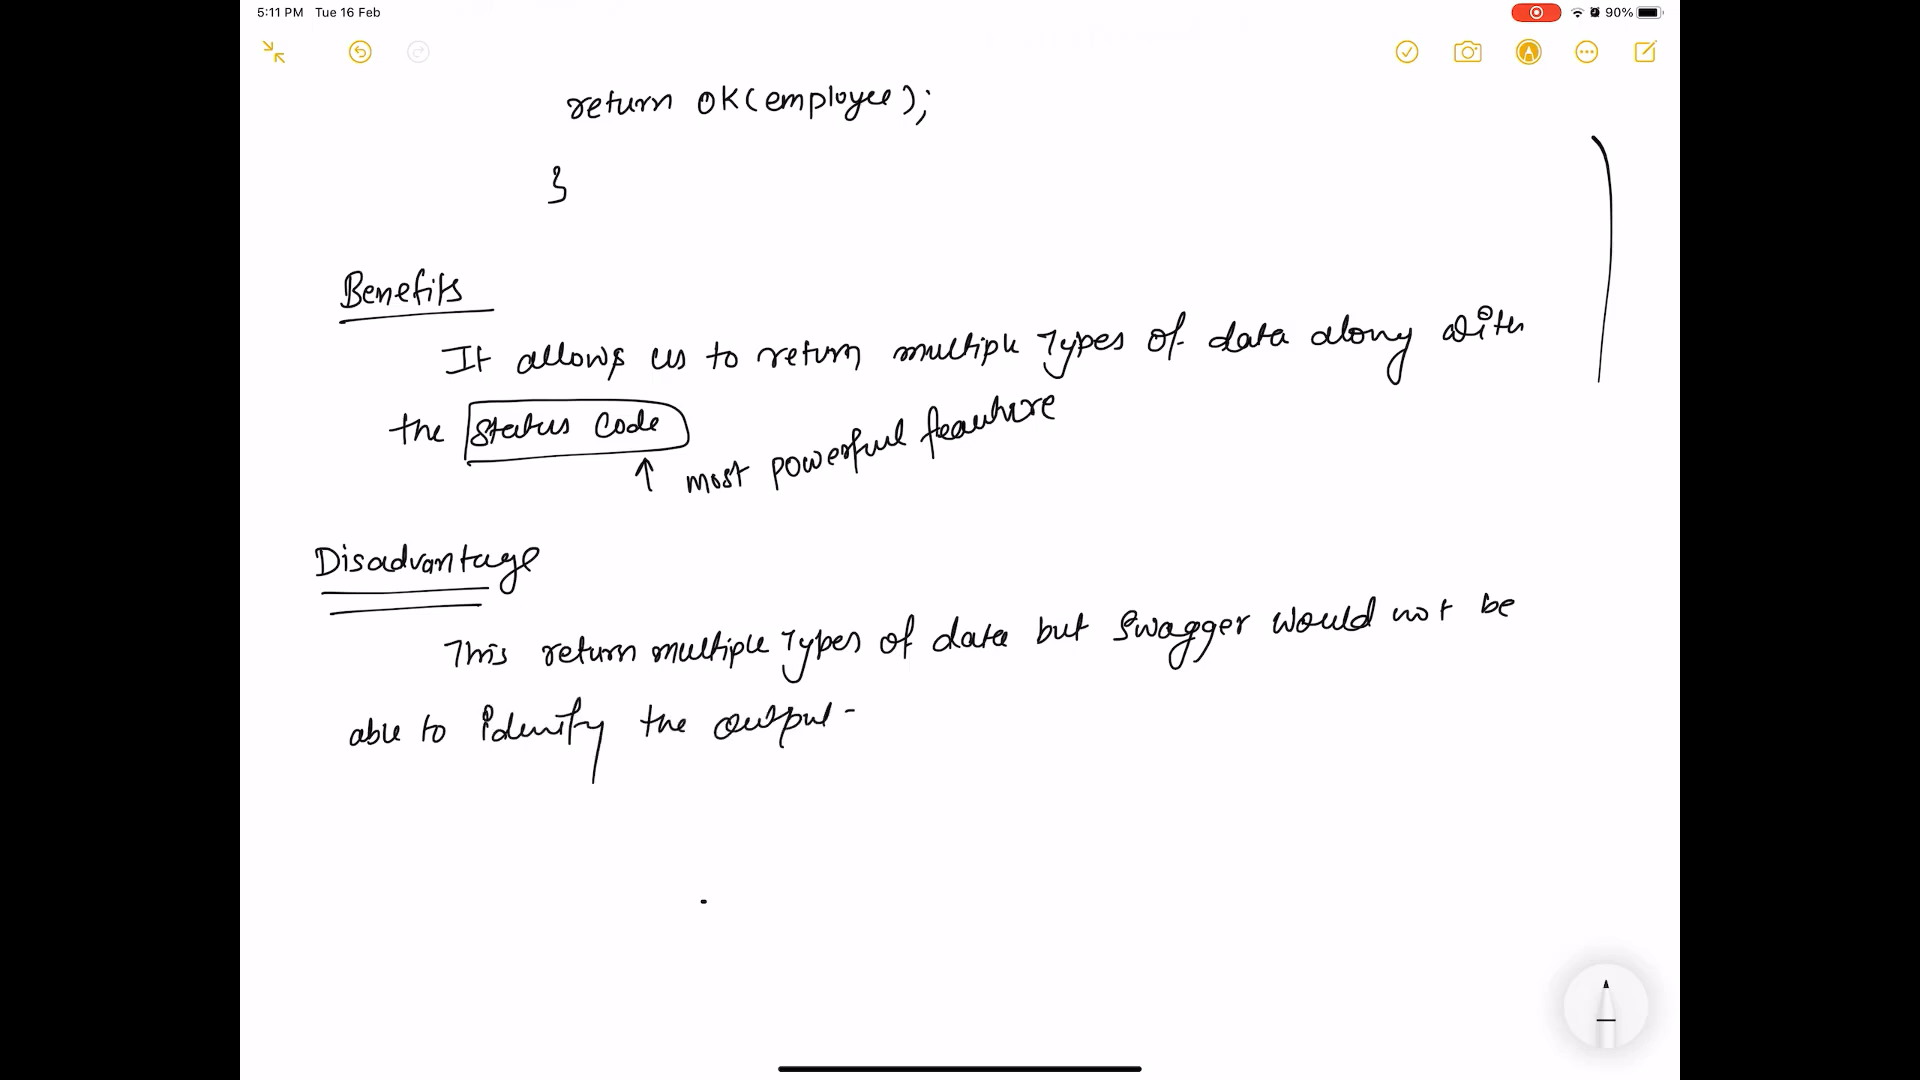 5:11 PM Tue 16 Feb
90%
return OK(employee);
}
Benefits
It allows us to return multiple Types of data along with
the Status Code
↑ most powerful feauture
Disadvantage
This return multiple Types of data but Swagger would not be
able to identify the output